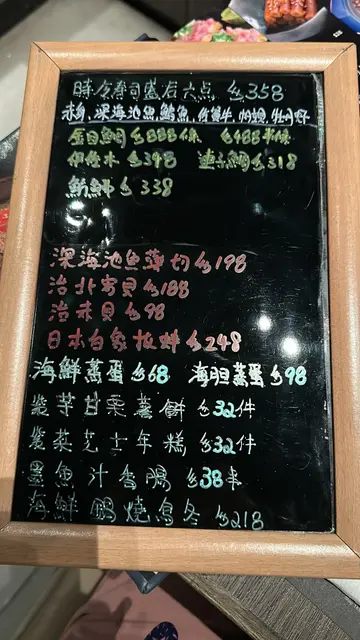 時令壽司盛合六点 $358
赤身,深海池魚,鯛魚,佐賀牛,帆立,牡丹虾
金目鯛 $888條 $488半條
伊佐木 $348 連子鯛 $318
魴鮄 $338
深海池魚薄切 $198
活北寄貝 $188
活赤貝 $98
日本白象拔蚌 $248
海鮮蒸蛋 $68 海胆蒸蛋 $98
紫芋甘栗薯餅 $32件
紫菜芝士年糕 $32件
墨魚汁香腸 $38半
海鮮鍋燒烏冬 $218